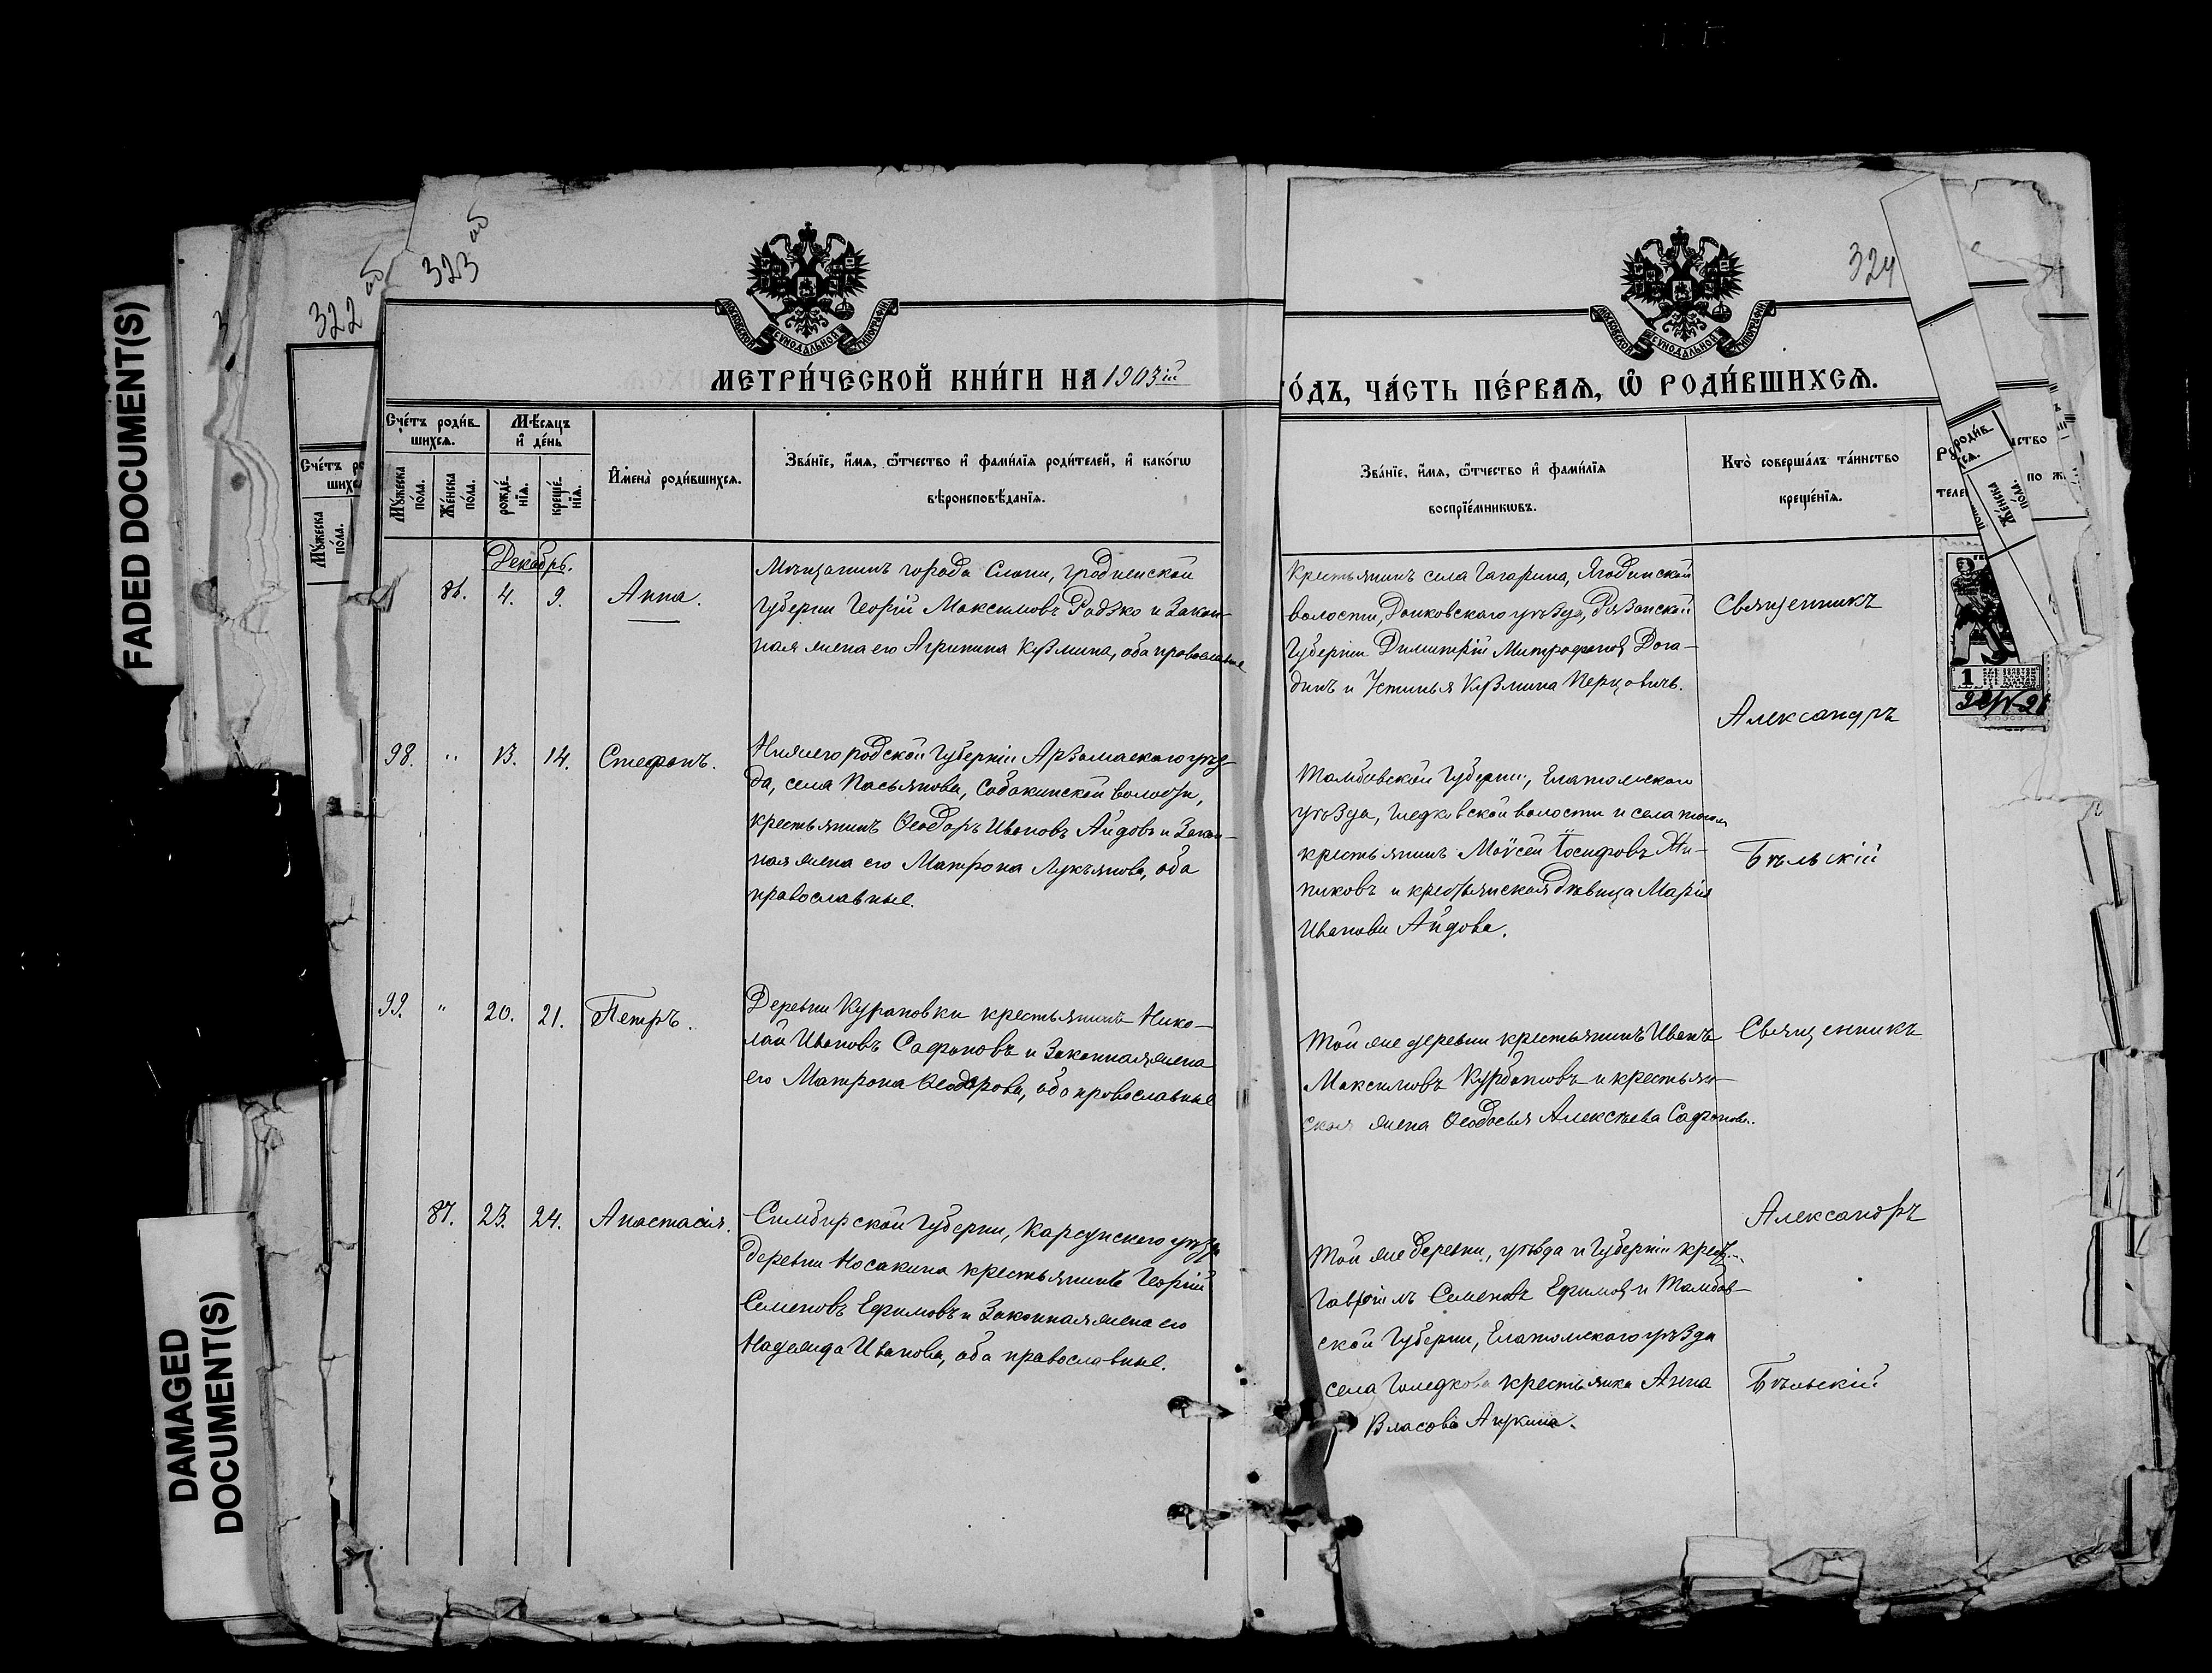 FADED DOCUMENT(S)
DAMAGED
DOCUMENT(S)
322 об
323 об
324
МОСКОВСКОЙ СѴНОДАЛЬНОЙ ТИПОГРАФІИ
МОСКОВСКОЙ СѴНОДАЛЬНОЙ ТИПОГРАФІИ
МЕТРИ́ЧЕСКОЙ КНИ́ГИ НА 1903ій
ГО́ДЪ, ЧА́СТЬ ПЕ́РВАѦ, Ѡ҆ РОДИ́ВШИХСѦ.
Сче́тъ роди́в
шихсѧ.
Мꙋ́жеска
по́ла.
Же́нска
по́ла.
Мѣ́сѧцъ
и҆ де́нь
рожде́
нїѧ.
креще́
нїѧ.
И҆мена̀ роди́вшихсѧ.
Зва́нїе, и҆́мѧ, ѻ҆́тчество и҆ фамѝлїѧ роди́телей, и҆ како́гѡ
вѣроисповѣ́данїѧ.
Зва́нїе, и҆́мѧ, ѻ҆́тчество и҆ фамѝлїѧ
воспрїе́мникѡвъ.
Кто̀ соверша́лъ та́инство
креще́нїѧ.
Декабрь.
86. 4. 9. Анна.
Мѣщанинъ города Слони, Гродненской
губерніи Георгій Максимовъ Радзко и закон-
ная жена его Агрипина Кузмина, оба православные
Крестьянинъ села Гагарина, Ягодинской
волости, Данковскаго уѣзда, Рязанской
губерніи Димитрій Митрофановъ Дога-
динъ и Устинья Кузмина Перцовичъ.
Священникъ
Александръ
Бѣльскій
98. " 13. 14. Стефанъ.
Нижегородской губерніи Арзамаскаго уѣз-
да, села Пасьянова, Собакинской волости,
крестьянинъ Ѳеодоръ Ивановъ Айдовъ и закон-
ная жена его Матрона Лукъянова, оба
православные.
Тамбовской губерніи, Елатомскаго
уѣзда, волости и села тогожъ
крестьянинъ Моѵсей Іосифовъ Ани-
никовъ и крестьянская дѣвица Марія
Иванова Айдова.
99. " 20. 21. Петръ.
Деревни Курановки крестьянинъ Нико-
лай Ивановъ Сафоновъ и законная жена
его Матрона Ѳеодорова, оба православные
Той же деревни крестьянинъ Иванъ
Максимовъ Курбатовъ и крестьян-
ская жена Ѳеодосья Алексѣева Сафонова.
Священникъ
Александръ
Бѣльскій
87. 23. 24. Анастасія.
Симбирской губерніи, Карсунского уѣзда
деревни Носакина крестьянинъ Георгій
Семеновъ Ефимовъ и законная жена его
Надежда Иванова, оба православные.
Той же деревни, уѣзда и губерніи крест.
Гавріилъ Семеновъ Ефимовъ и Тамбов-
ской губерніи, Елатомскаго уѣзда
села крестьянка Анна
Власова Аникина.
1